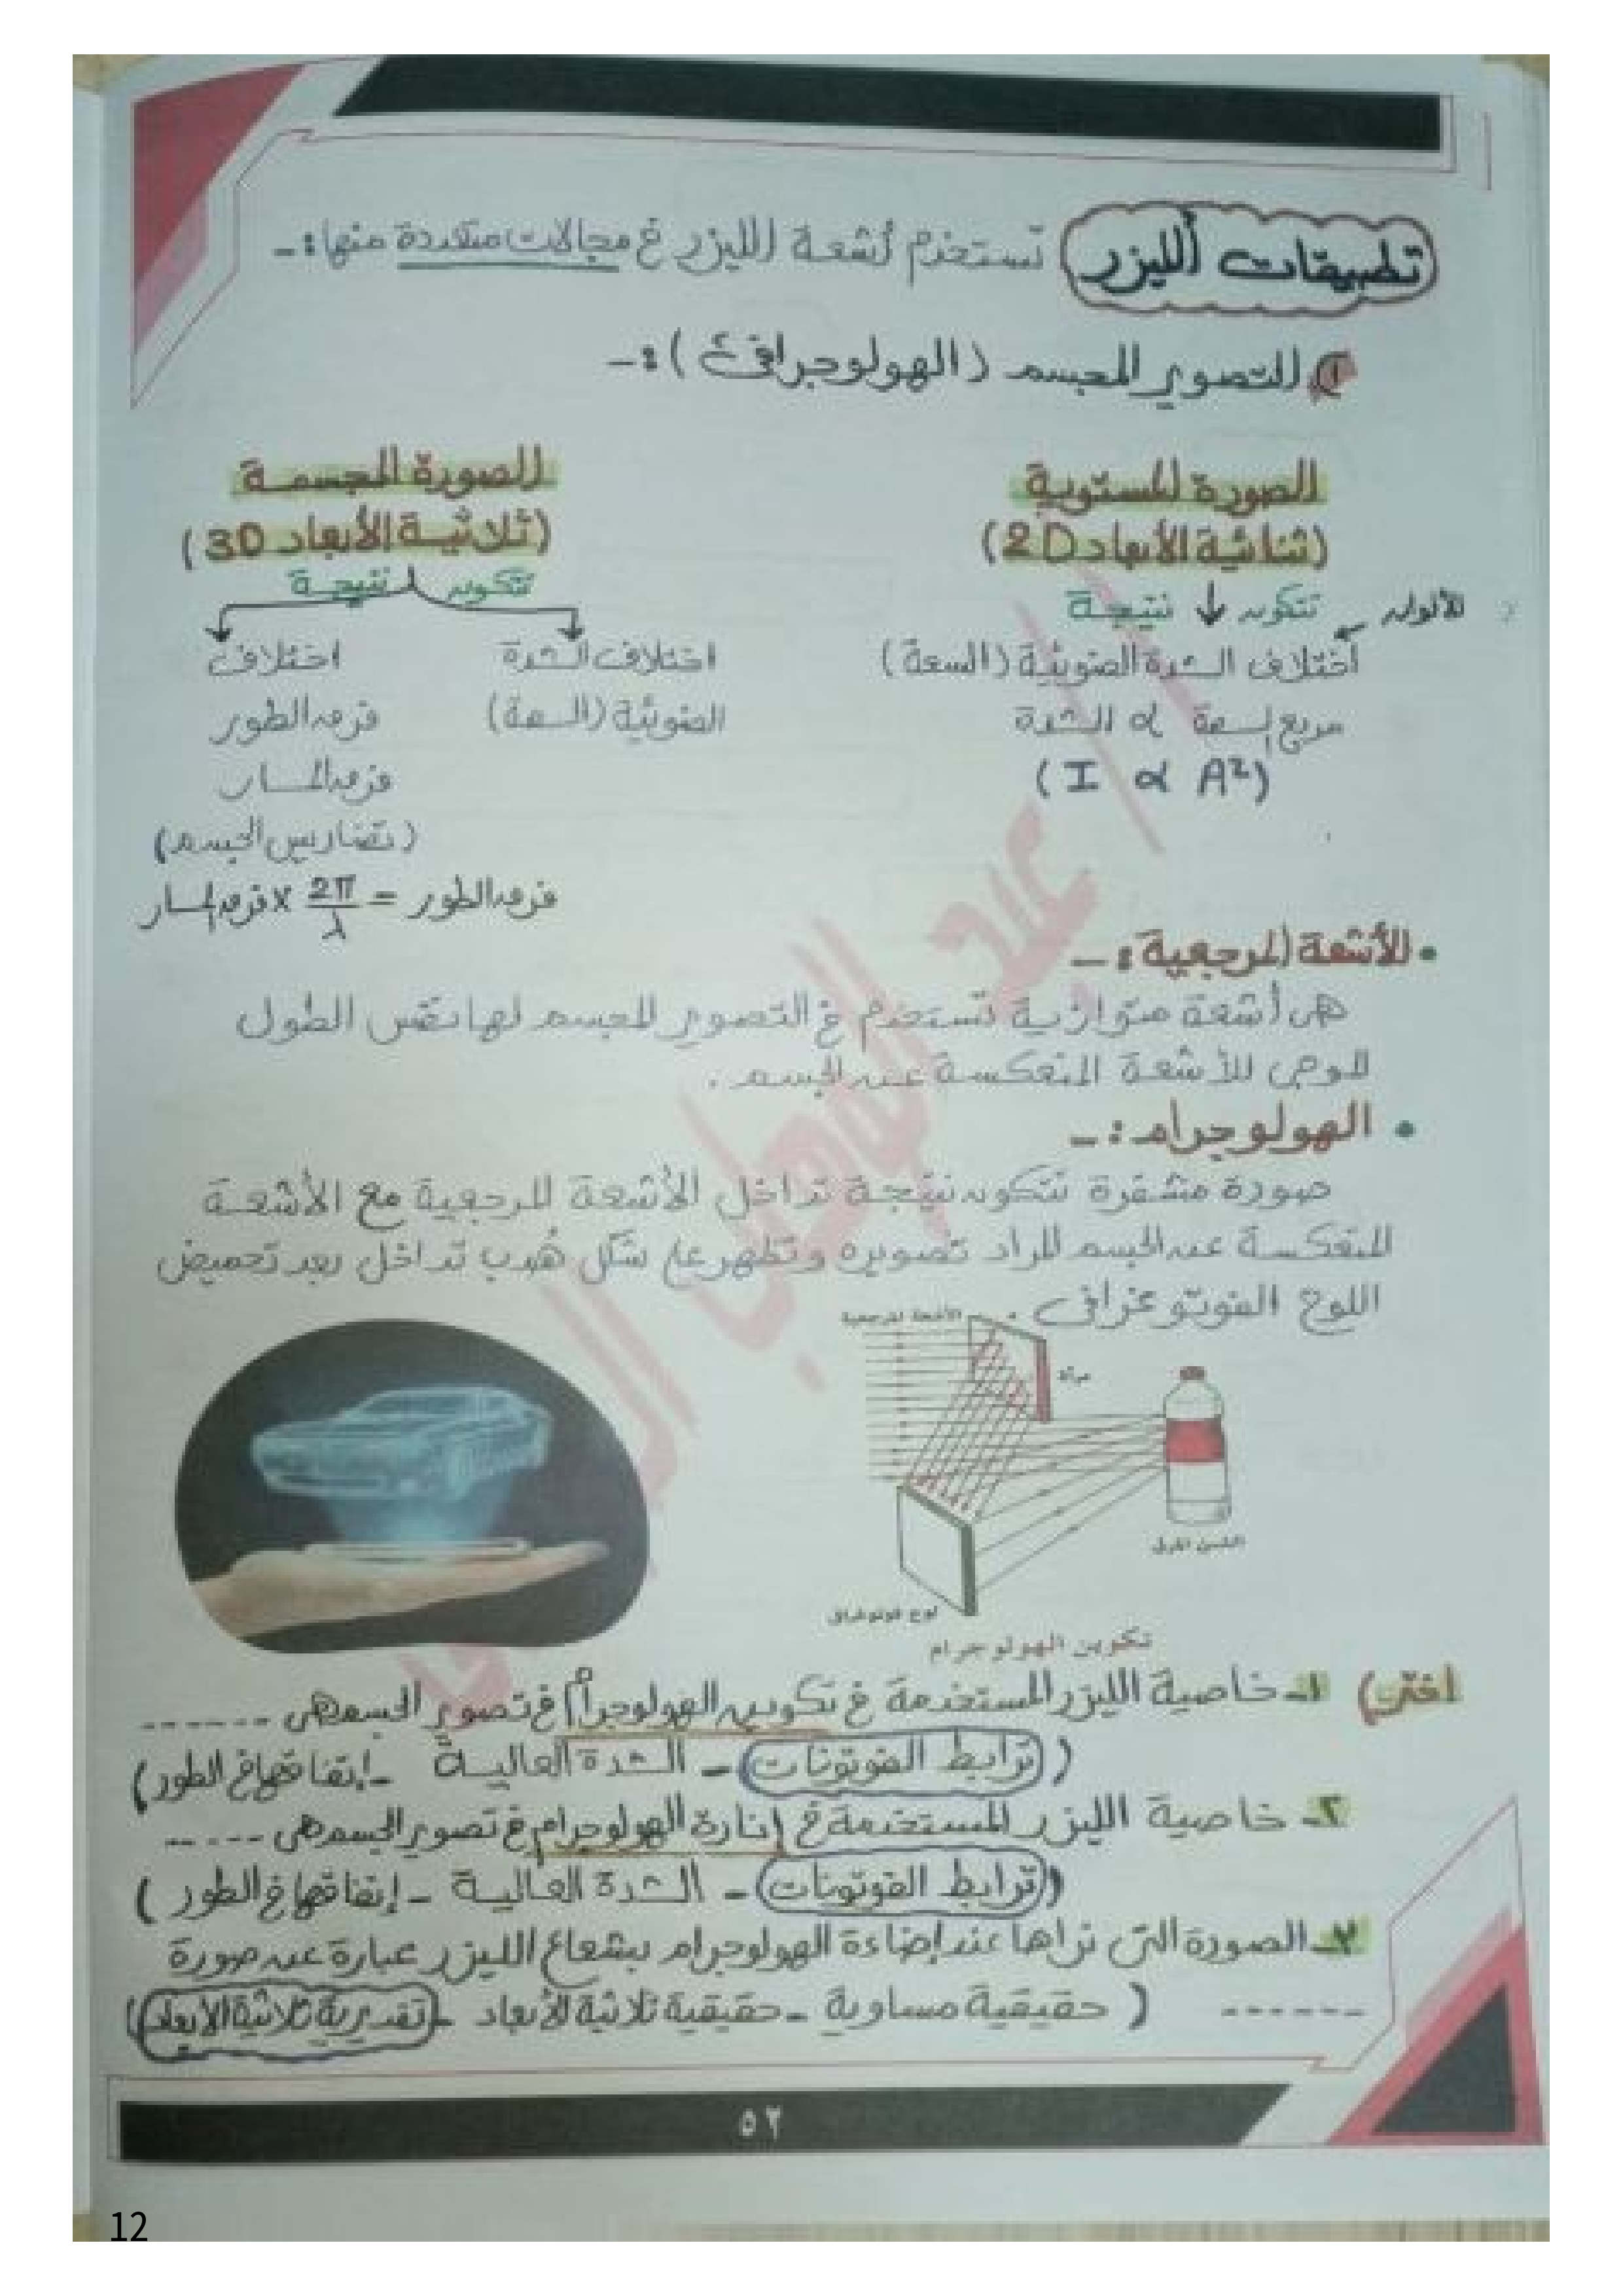 تطبيقات الليزر تستخدم أشعة الليزر في مجالات متعددة منها :-
١) التصوير المجسم (الهولوجرافي) :-
الصورة المستوية
(ثنائية الأبعاد 2D)
تتكون نتيجة
الألوان
اختلاف الشدة الضوئية (السعة)
مربع السعة α الشدة
(I α A²)
الصورة المجسمة
(ثلاثية الأبعاد 3D)
تتكون نتيجة
اختلاف الشدة
الضوئية (السعة)
اختلاف
فرق الطور
فرق المسار
(تضاريس الجسم)
فرق الطور = 2π/λ × فرق المسار
• الأشعة المرجعية :-
هي أشعة متوازية تستخدم في التصوير المجسم لها نفس الطول
الموجي للأشعة المنعكسة عن الجسم .
• الهولوجرام :-
صورة مشفرة تتكون نتيجة تداخل الأشعة المرجعية مع الأشعة
المنعكسة عن الجسم المراد تصويره وتظهر على شكل هُدب تداخل بعد تحميض
اللوح الفوتوغرافي .
الأشعة المرجعية
مرآة
لوح فوتوغرافى
تكوين الهولوجرام
اختر) ١- خاصية الليزر المستخدمة في تكوين الهولوجرام في تصوير الجسم هي ------
(ترابط الفوتونات - الشدة العالية - إتفاقها في الطور)
٢- خاصية الليزر المستخدمة في إنارة الهولوجرام في تصوير الجسم هي ------
(ترابط الفوتونات - الشدة العالية - إتفاقها في الطور)
٣- الصورة التي نراها عند إضاءة الهولوجرام بشعاع الليزر عبارة عن صورة
------ (حقيقية مساوية - حقيقية ثلاثية الأبعاد - تقديرية ثلاثية الأبعاد)
٥٢
12